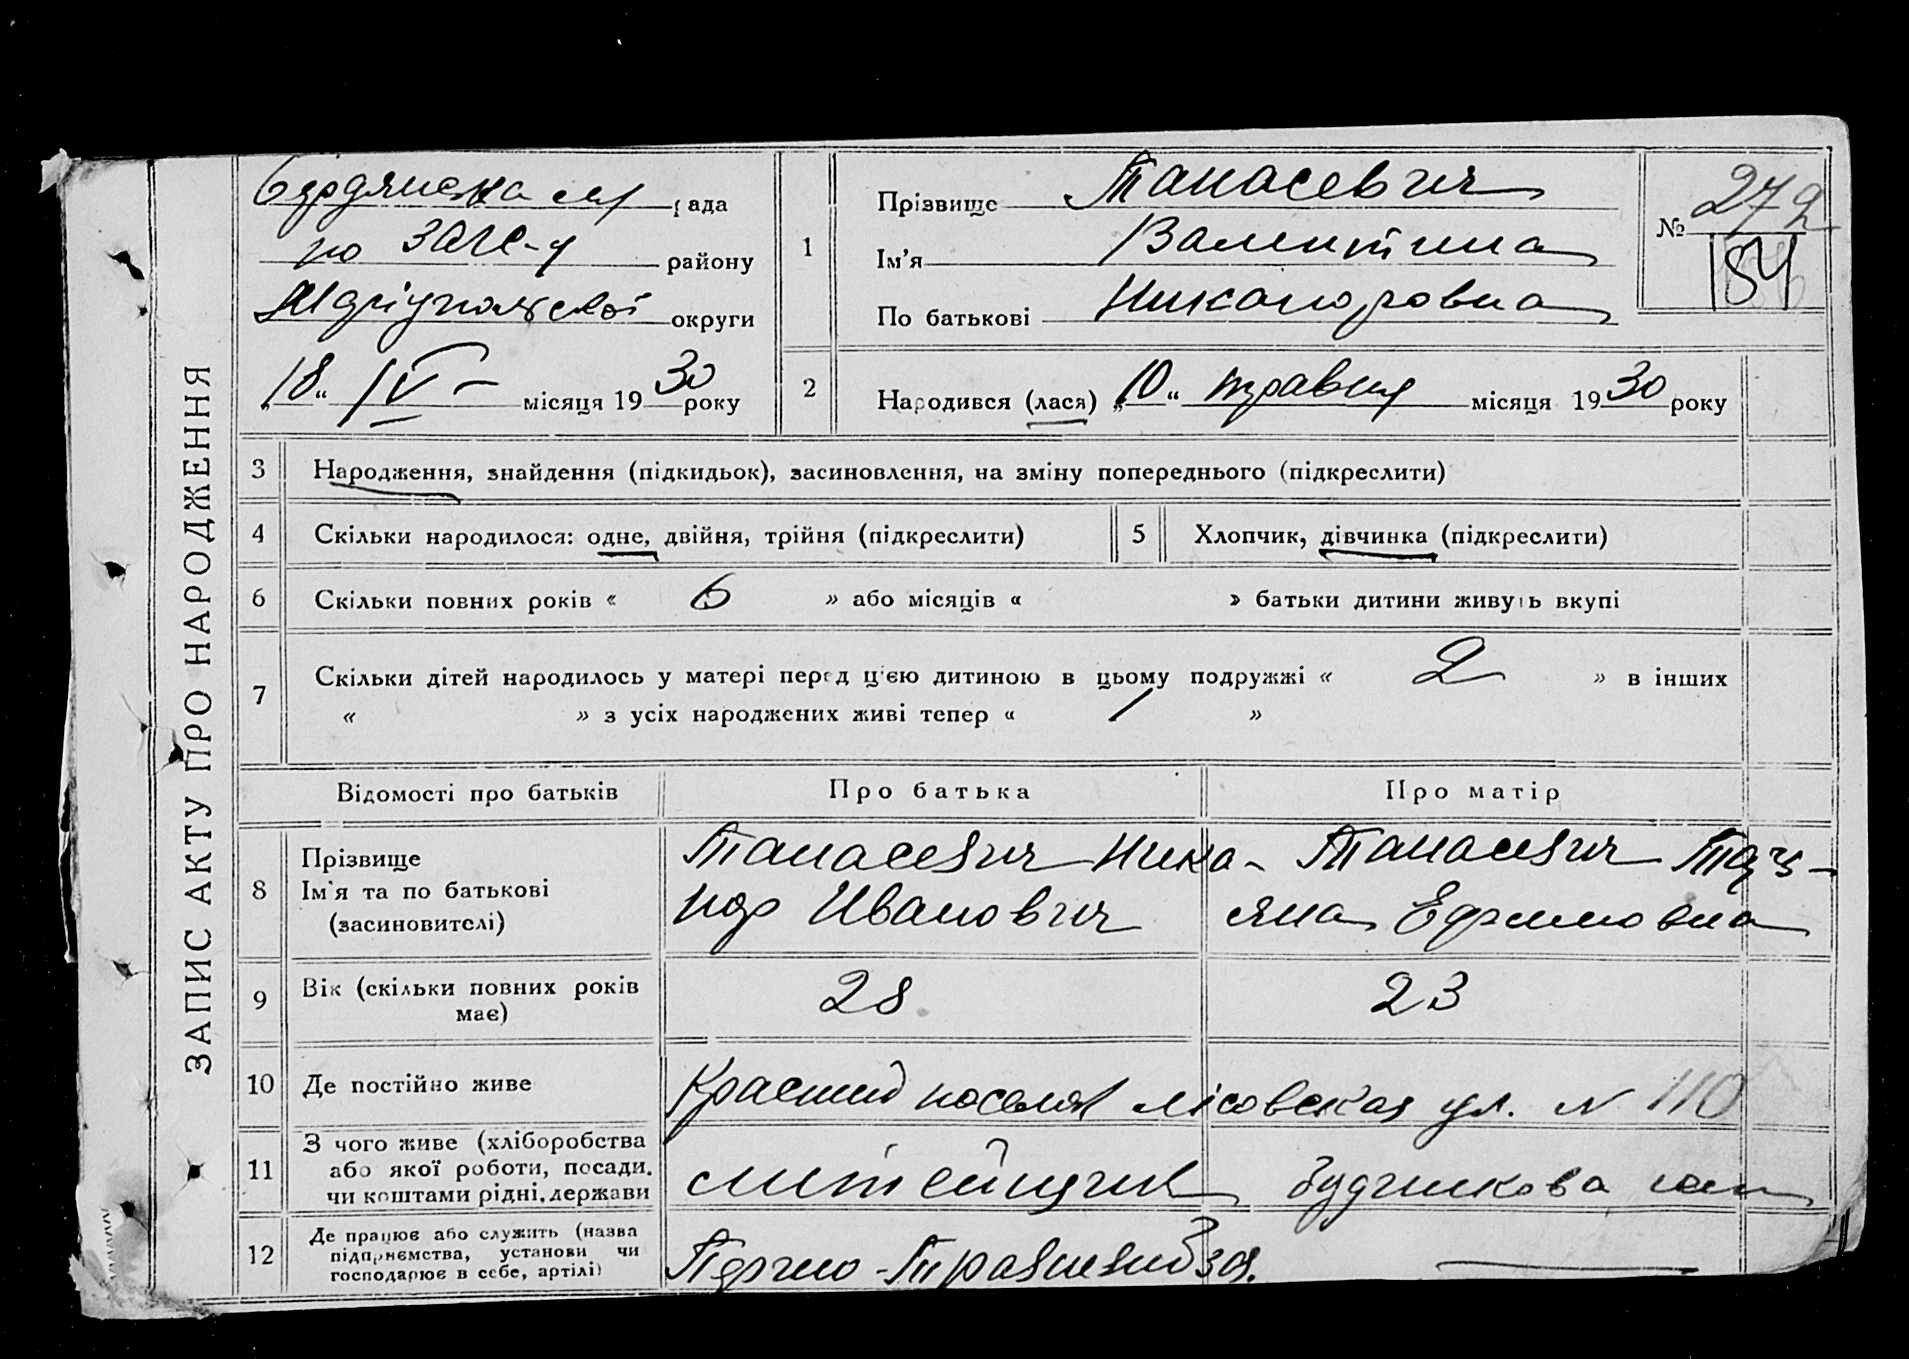 ЗАПИС АКТУ ПРО НАРОДЖЕННЯ
Бердянська м/ рада
по ЗАГС-у району
Маріупольської округи
„18“ IV - місяця 1930 року
1
Прізвище Танасевич
Ім'я Валентина
По батькові Никаноровна
№ 272
154
2 Народився (лася) „10“ травня місяця 1930 року
3 Народження, знайдення (підкидьок), засиновлення, на зміну попереднього (підкреслити)
4 Скільки народилося: одне, двійня, трійня (підкреслити) 5 Хлопчик, дівчинка (підкреслити)
6 Скільки повних років « 6 » або місяців « » батьки дитини живуть вкупі
7 Скільки дітей народилось у матері перед ц'єю дитиною в цьому подружжі « 2 » в інших
« » з усіх народжених живі тепер « 1 »
Відомості про батьків Про батька Про матір
8 Прізвище
Ім'я та по батькові
(засиновителі)
Танасевич Ника-
нор Иванович
Танасевич Тать-
яна Ефимовна
9 Вік (скільки повних років
має)
28 23
10 Де постійно живе Красний поселок лісовская ул. N 110
11 З чого живе (хліборобства
або якої роботи, посади,
чи коштами рідні, держави
литейщик
12 Де працює або служить (назва
підприємства, установи чи
господарює в себе, артілі)
Першо-Травневий зав. —